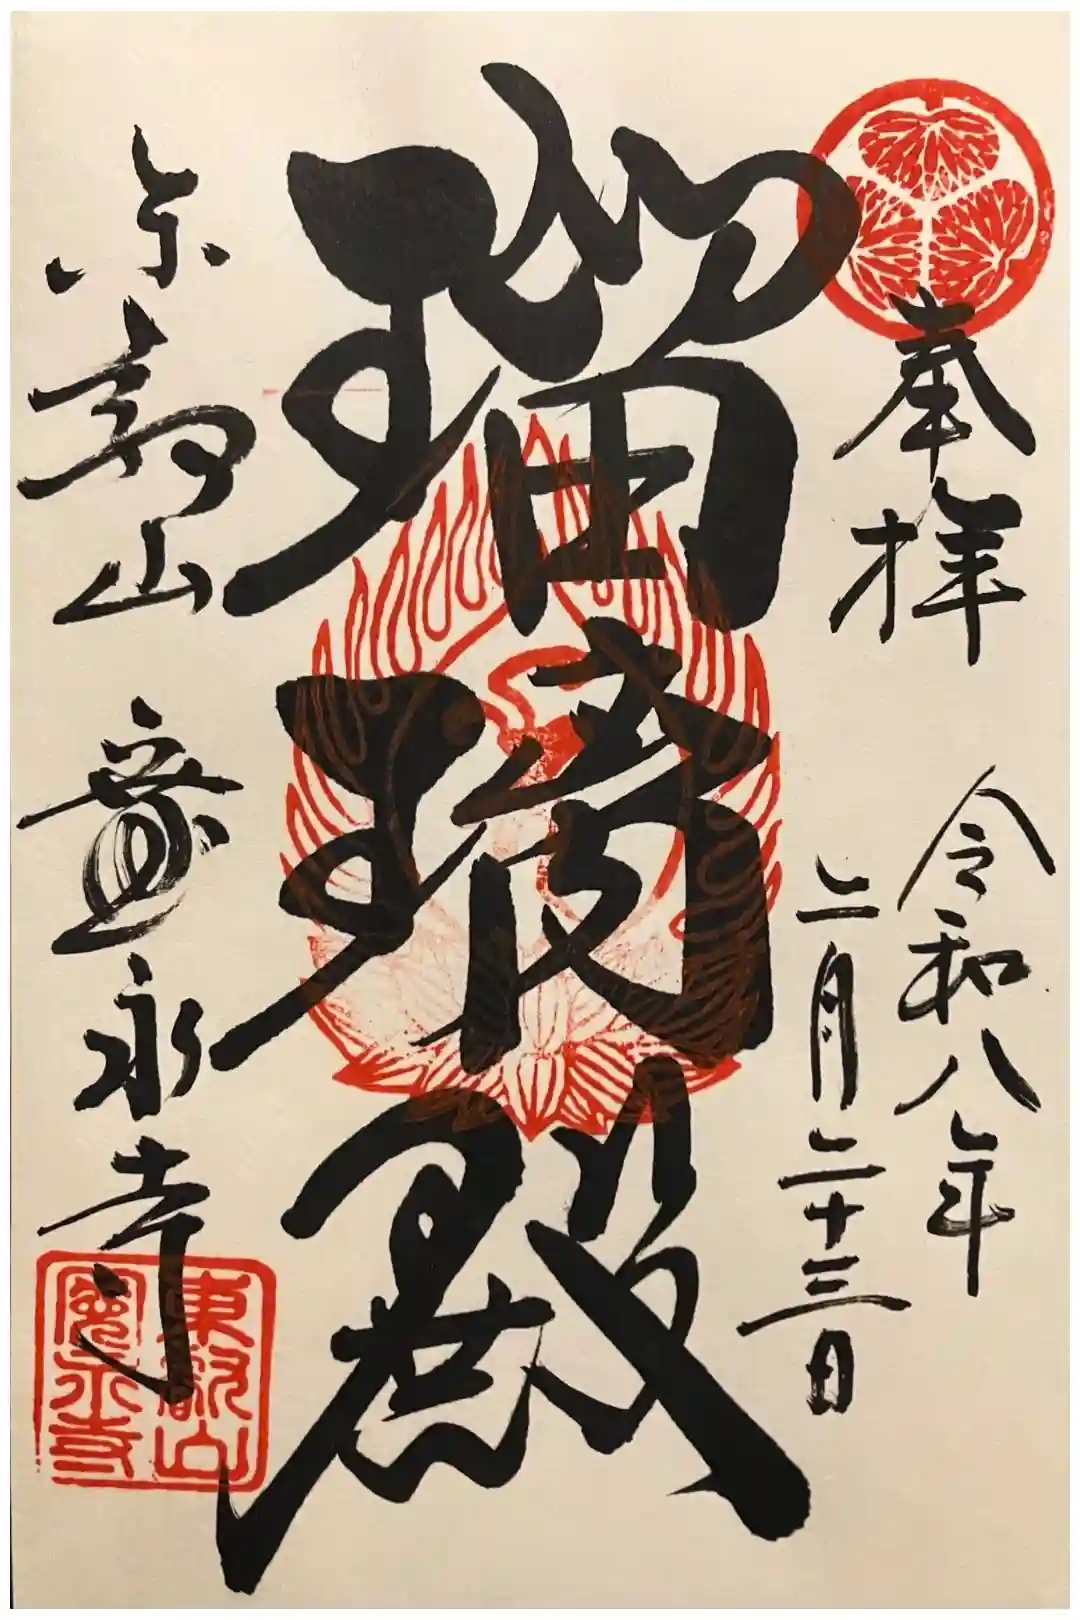 奉拝
令和八年
二月二十三日
瑠璃殿
東叡山 寛永寺
東叡山
寛永寺